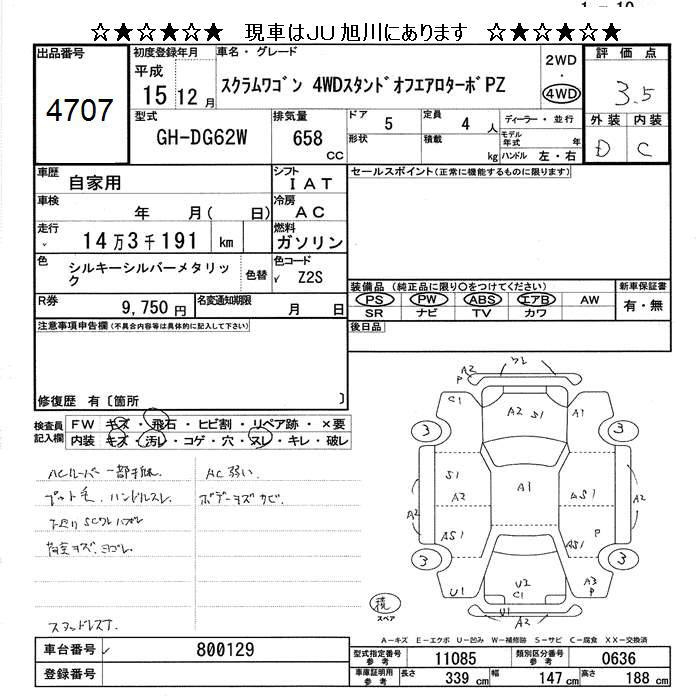 ☆★☆★☆★ 現車はJU旭川にあります ☆★☆★☆★
出品番号
4707
初度登録年月
平成
15 12 月
車名・グレード
スクラムワゴン 4WDスタンドオフエアロターボPZ
2WD
・
4WD
評価点
3.5
外装 内装
D C
型式
GH-DG62W
排気量
658
cc
ドア
5
定員
4 人
形状
積載
kg
ディーラー・並行
モデル年式 年
ハンドル 左・右
車歴
自家用
シフト
IAT
車検
年 月( 日)
冷房
AC
走行
14万3千191 km
燃料
ガソリン
色
シルキーシルバーメタリック
色替
色コード
Z2S
R券
9,750 円
名変通知期限
月 日
セールスポイント(正常に機能するものに限ります)
装備品 (純正品に限り○をつけてください)
PS PW ABS エアB AW
SR ナビ TV カワ
新車保証書
有・無
後日品
注意事項申告欄(不具合内容等は具体的に記入して下さい)
修復歴 有〔箇所 〕
検査員記入欄
FW キズ・飛石・ヒビ割・リペア跡・×要
内装 キズ・汚レ・コゲ・穴・スレ・キレ・破レ
AC弱い
ボデーキズサビ
ハンドルスレ
荷室キズ、ヨゴレ
スタッドレス
A2
P
A2
C1
A2
S1
A1
3
3
S1
A2
A1
AS1
A2
A2
AS1
P
AS1
3
3
U1
U2
C1
A3
P
U1
A2
スペア
A−キズ E−エクボ U−凹み W−補修跡 S−サビ C−腐食 XX−交換済
車台番号
800129
登録番号
型式指定番号
参考
11085
類別区分番号
参考
0636
車庫証明用
参考
長さ
339 cm
幅
147 cm
高さ
188 cm